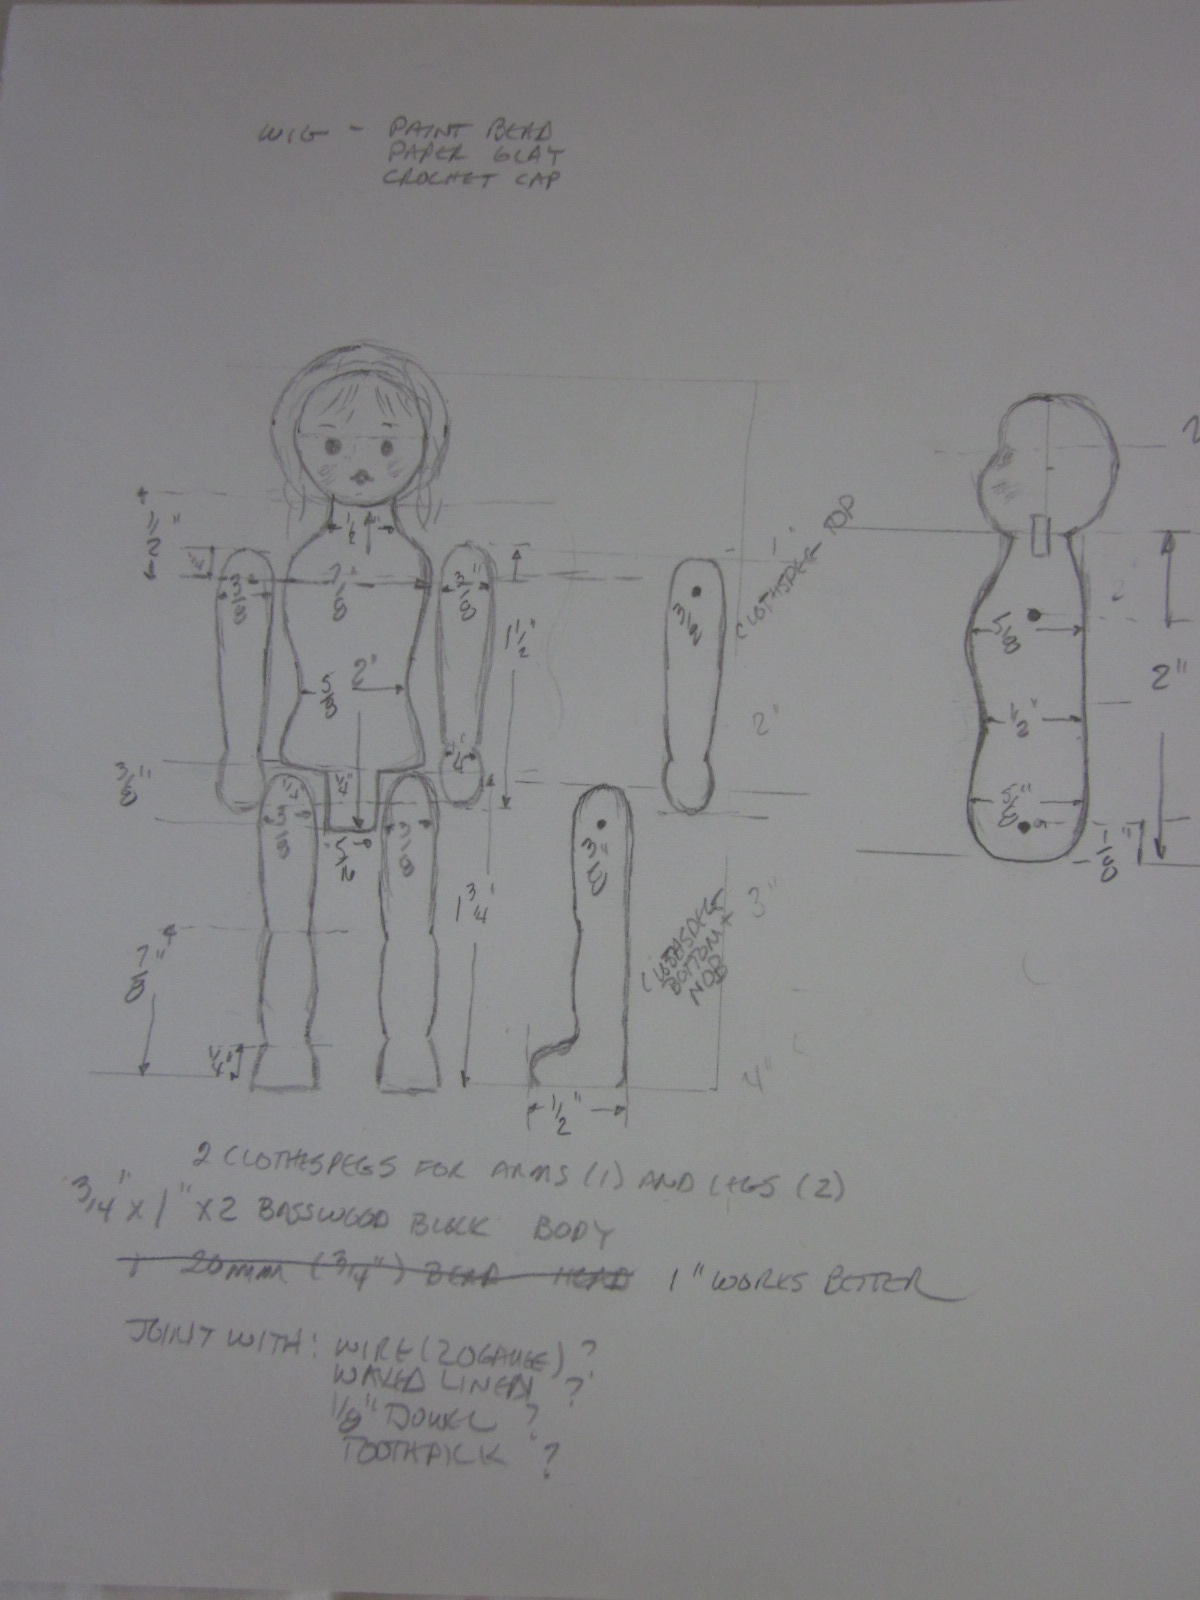 WIG - PAINT BEAD
PAPER CLAY
CROCHET CAP
1/2"
1/2"
1/4"
3/8"
7/8"
3/8"
1 1/2"
3/8
CLOTHSPEG TOP
1"
2"
5/8
2"
1/4"
3/8"
1/4"
3/8
1/4"
5/16
3/8
3/8"
1 3/4"
CLOTHSPEG
BOTTOM +
NOB
3"
7/8"
1/4"
1/2"
4"
5/8
2"
1/2"
5/8"
1/8"
2 CLOTHESPEGS FOR ARMS (1) AND LEGS (2)
3/4" X 1" X 2 BASSWOOD BLOCK BODY
1 20mm (3/4") BEAD HEAD 1" WORKS BETTER
JOINT WITH: WIRE (20 GAUGE) ?
WAXED LINEN ?
1/8" DOWEL ?
TOOTHPICK ?